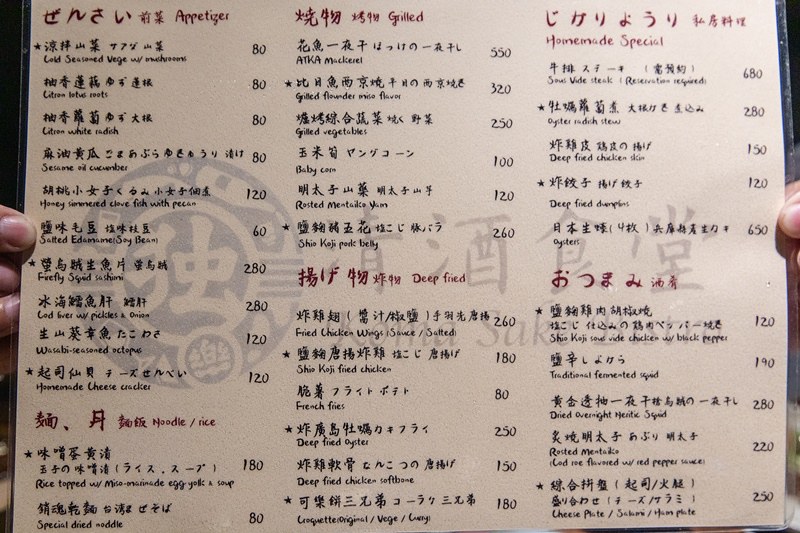 ぜんさい 前菜 Appetizer
★涼拌山菜 サラダ 山菜 80
Cold Seasoned Vege w/ mushrooms
柚香蓮藕 ゆず 蓮根 80
Citron lotus roots
柚香蘿蔔 ゆず 大根 80
Citron white radish
麻油黄瓜 ごまあぶら ゆきゅうり 漬け 80
Sesame oil cucumber
胡桃小女子 くるみ 小女子佃煮 120
Honey simmered clove fish with pecan
鹽味毛豆 塩味枝豆 60
Salted Edamame(Soy Bean)
★螢烏賊生魚片 螢烏賊 280
Firefly Squid sashimi
冰海鱈魚肝 鱈肝 280
Cod liver w/ pickles & Onion
生山葵章魚 たこわさ 120
Wasabi-seasoned octopus
★起司仙貝 チーズせんべい 120
Homemade Cheese cracker
麵、丼 麵飯 Noodle / rice
★味噌蛋黄漬
玉子の味噌漬 (ライス、スープ) 180
Rice topped w/ Miso-marinade egg yolk & soup
銷魂乾麵 台湾まぜそば 80
Special dried noddle
焼物 烤物 Grilled
花魚一夜干 ほっけの一夜干し 550
ATKA Mackerel
★比目魚西京燒 平目の西京焼き 320
Grilled flounder miso flavor
爐烤綜合蔬菜 焼く 野菜 250
Grilled vegetables
玉米筍 ヤングコーン 100
Baby corn
明太子山菜 明太子山芋 120
Rosted Mentaiko Yam
★鹽麴豬五花 塩こじ 豚バラ 260
Shio Koji pork belly
揚げ物 炸物 Deep fried
炸雞翅 (醬汁/椒鹽) 手羽先唐揚 260
Fried Chicken Wings (Sauce / Salted)
★鹽麴唐揚炸雞 塩こじ 唐揚げ 180
Shio Koji fried chicken
脆薯 フライト ポテト 80
French fries
★炸廣島牡蠣カキフライ 250
Deep fried oyster
炸雞軟骨 なんこつの 唐揚げ 150
Deep fried chicken softbone
★可樂餅三兄弟 コーラケ 三兄弟 180
Croquette(Original / Vege / Curry)
じかりようり 私房料理
Homemade Special
牛排 ステーキ (需預約) 680
Sous Vide steak (Reservation required)
★牡蠣蘿蔔煮 大根かき 煮込み 280
oyster radish stew
炸雞皮 鶏皮の 揚げ 150
Deep fried chicken skin
★炸餃子 揚げ餃子 120
Deep fried dumplins
日本生蠔 (4枚) 兵庫縣産生カキ 650
oysters
おつまみ 酒肴
★鹽麴雞肉胡椒燒
塩こじ 仕込みの 鶏肉ペッパー焼き 120
Shio Koji sous vide chicken w/ black pepper
鹽辛 しよから 190
Traditional fermented squid
黄金透抽一夜干 槍烏賊の一夜干し 280
Dried Overnight Neritic Squid
炙燒明太子 あぶり 明太子 220
Rosted Mentaiko
(Cod roe flavored w/ red pepper sauce)
★綜合拼盤 (起司/火腿)
盛り合わせ (チーズ/サラミ) 250
Cheese Plate / Salami / Ham plate
清酒食堂